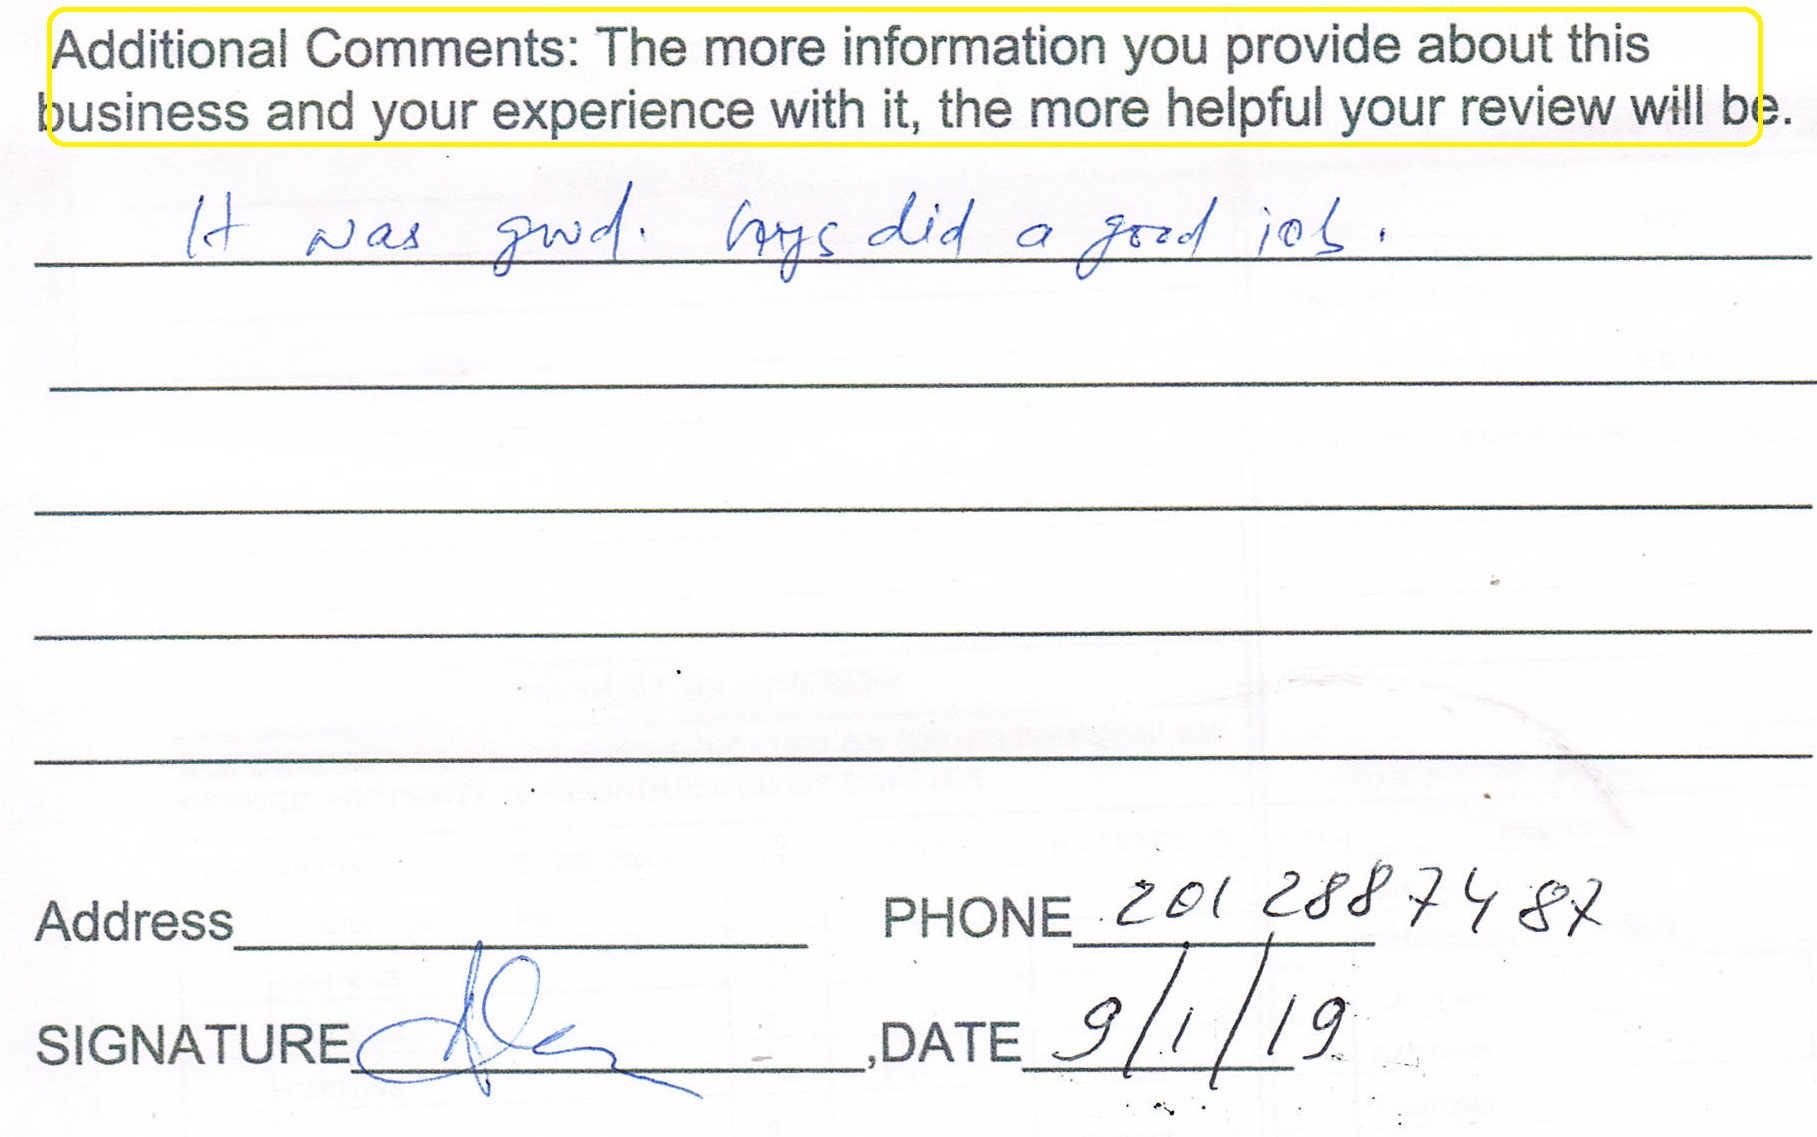 Additional Comments: The more information you provide about this
business and your experience with it, the more helpful your review will be.
It was good. Guys did a good job.
Address PHONE 201 288 74 87
SIGNATURE ,DATE 9/1/19